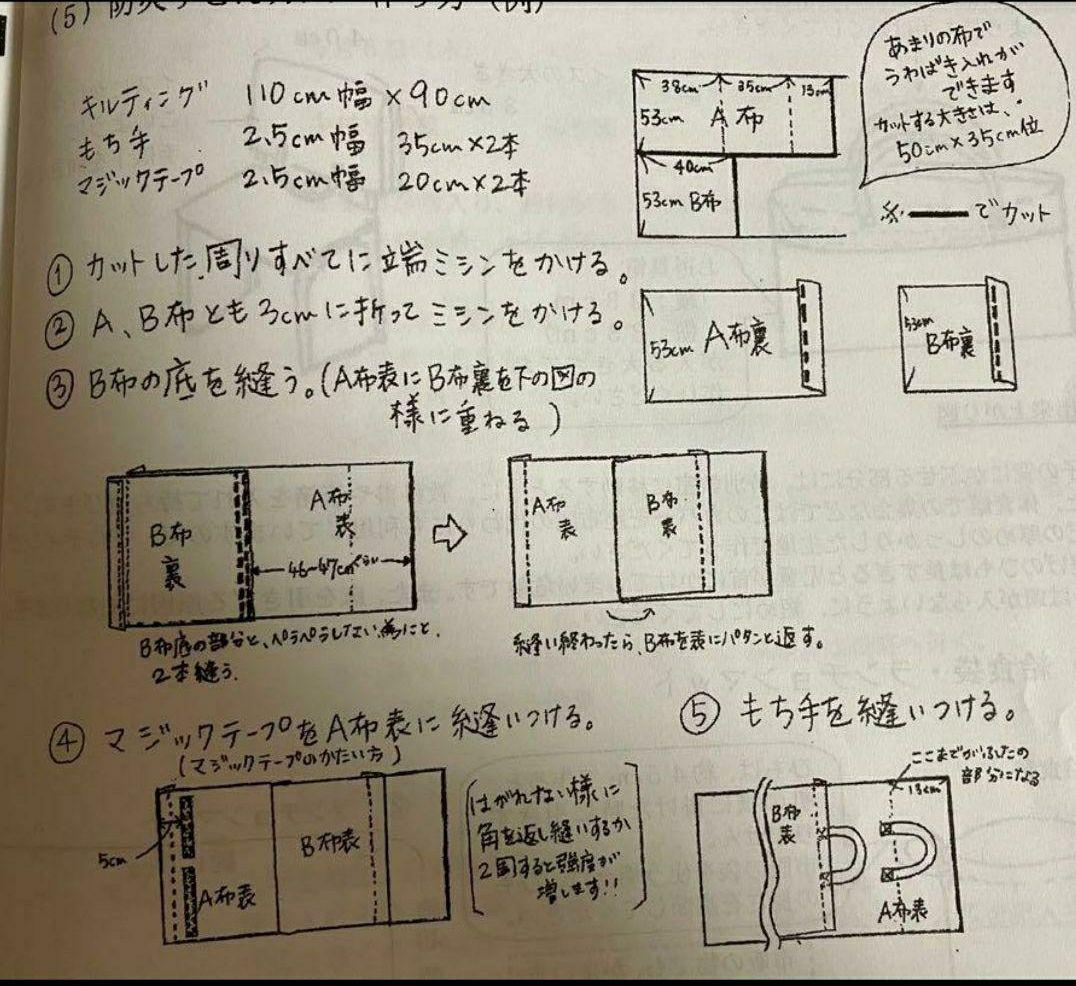 (5) 防災ずきんカバー 作り方 (例)
キルティング 110cm幅×90cm
もち手 2.5cm幅 35cm×2本
マジックテープ 2.5cm幅 20cm×2本
38cm 35cm 13cm
53cm A布
40cm
53cm B布
あまりの布で
うわばき入れが
できます
カットする大きさは、
50cm×35cm位
※ でカット
① カットした周りすべてに端ミシンをかける。
② A、B布とも3cmに折ってミシンをかける。
53cm A布裏
53cm
B布裏
③ B布の底を縫う。(A布表にB布裏を下の図の
様に重ねる)
B布
裏
A布
表
46~47cmぐらい
⇨
A布
表
B布
表
B布底の部分と、ペラペラしない為にと、
2本縫う。
縫い終わったら、B布を表にパタンと返す。
④ マジックテープをA布表に縫いつける。
(マジックテープのかたい方)
5cm
A布表
B布表
はがれない様に
角を返し縫いするか
2周すると強度が
増します!!
⑤ もち手を縫いつける。
ここまでがふたの
部分になる
13cm
B布
表
A布表